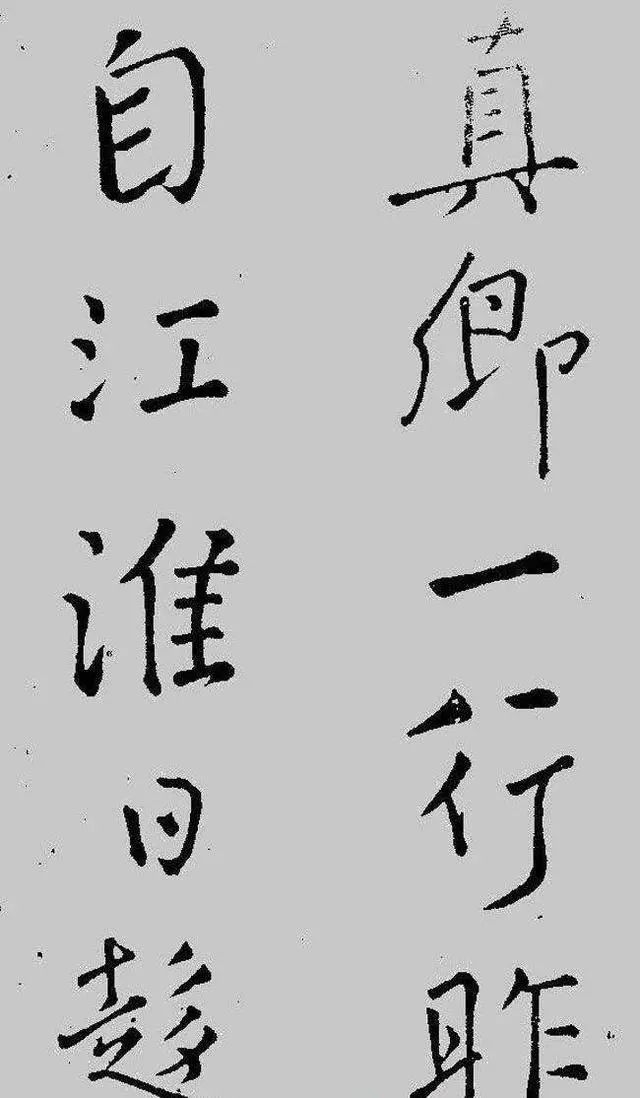 真卿一行昨
自江淮日趍